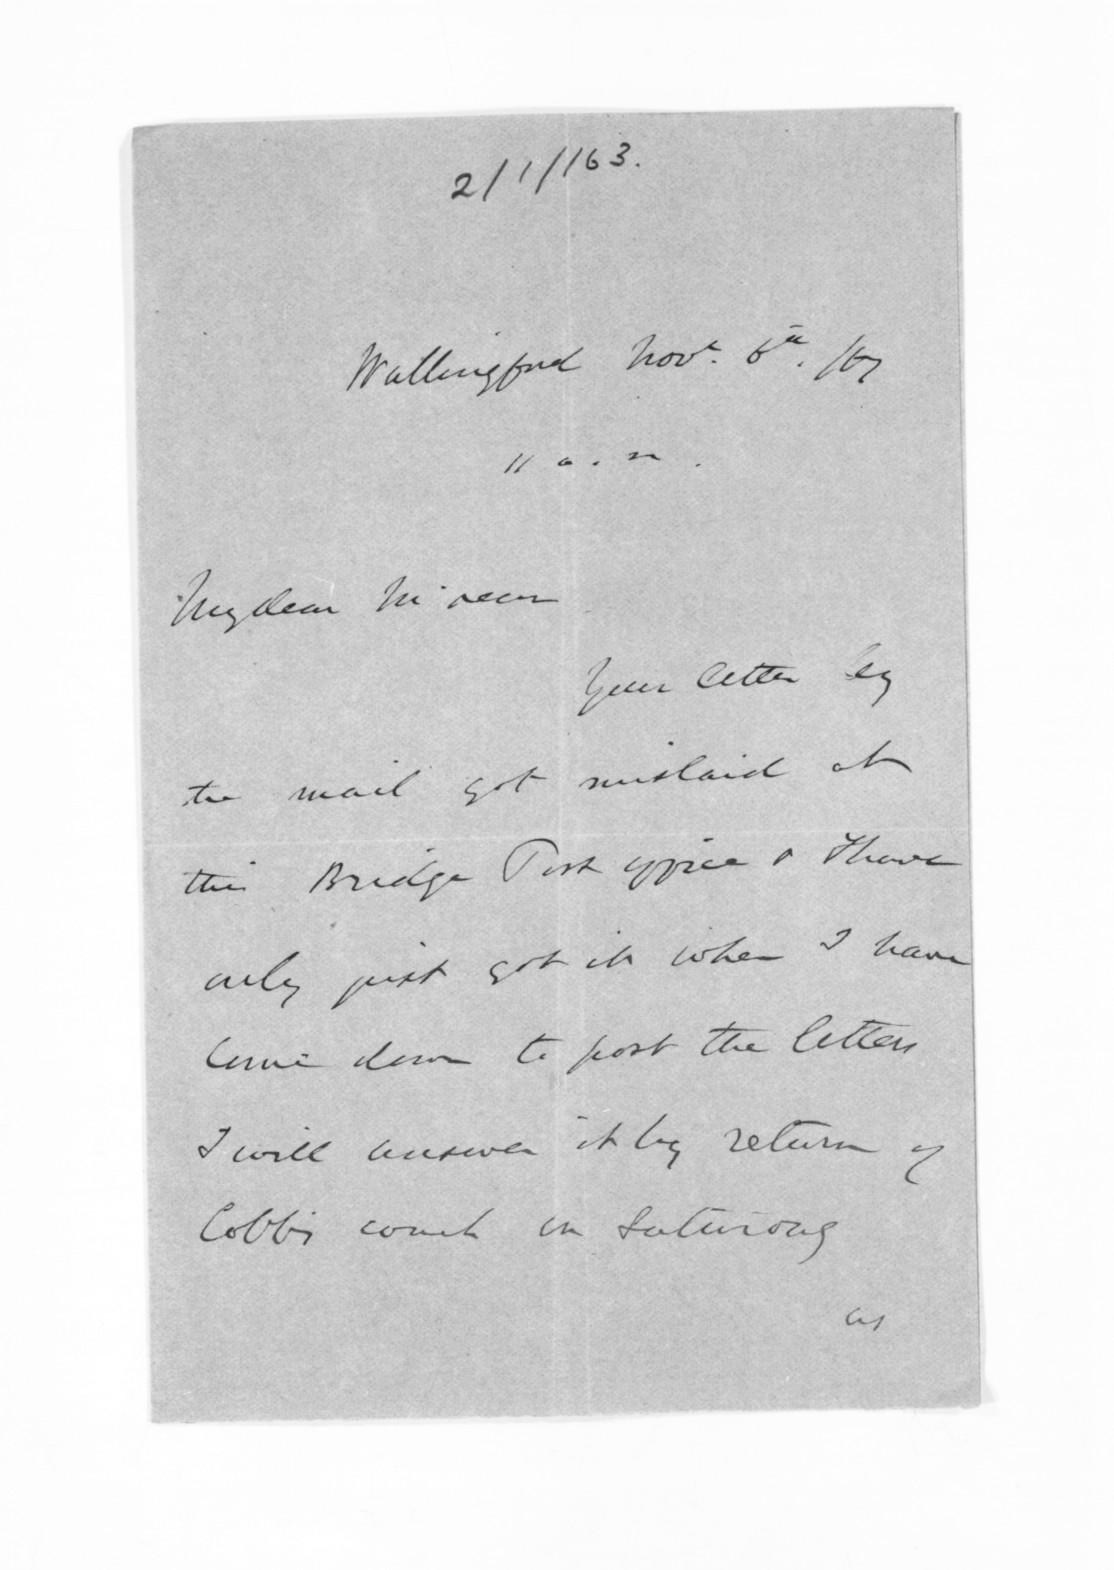 2/1/163.
Wallingford Novr. 6th. /67
11 a.m.
My dear McLean
Your letter by
the mail got mislaid at
the Bridge Post office & I have
only just got it when I have
come down to post the letters
I will answer it by return of
Cobbs coach on Saturday
as